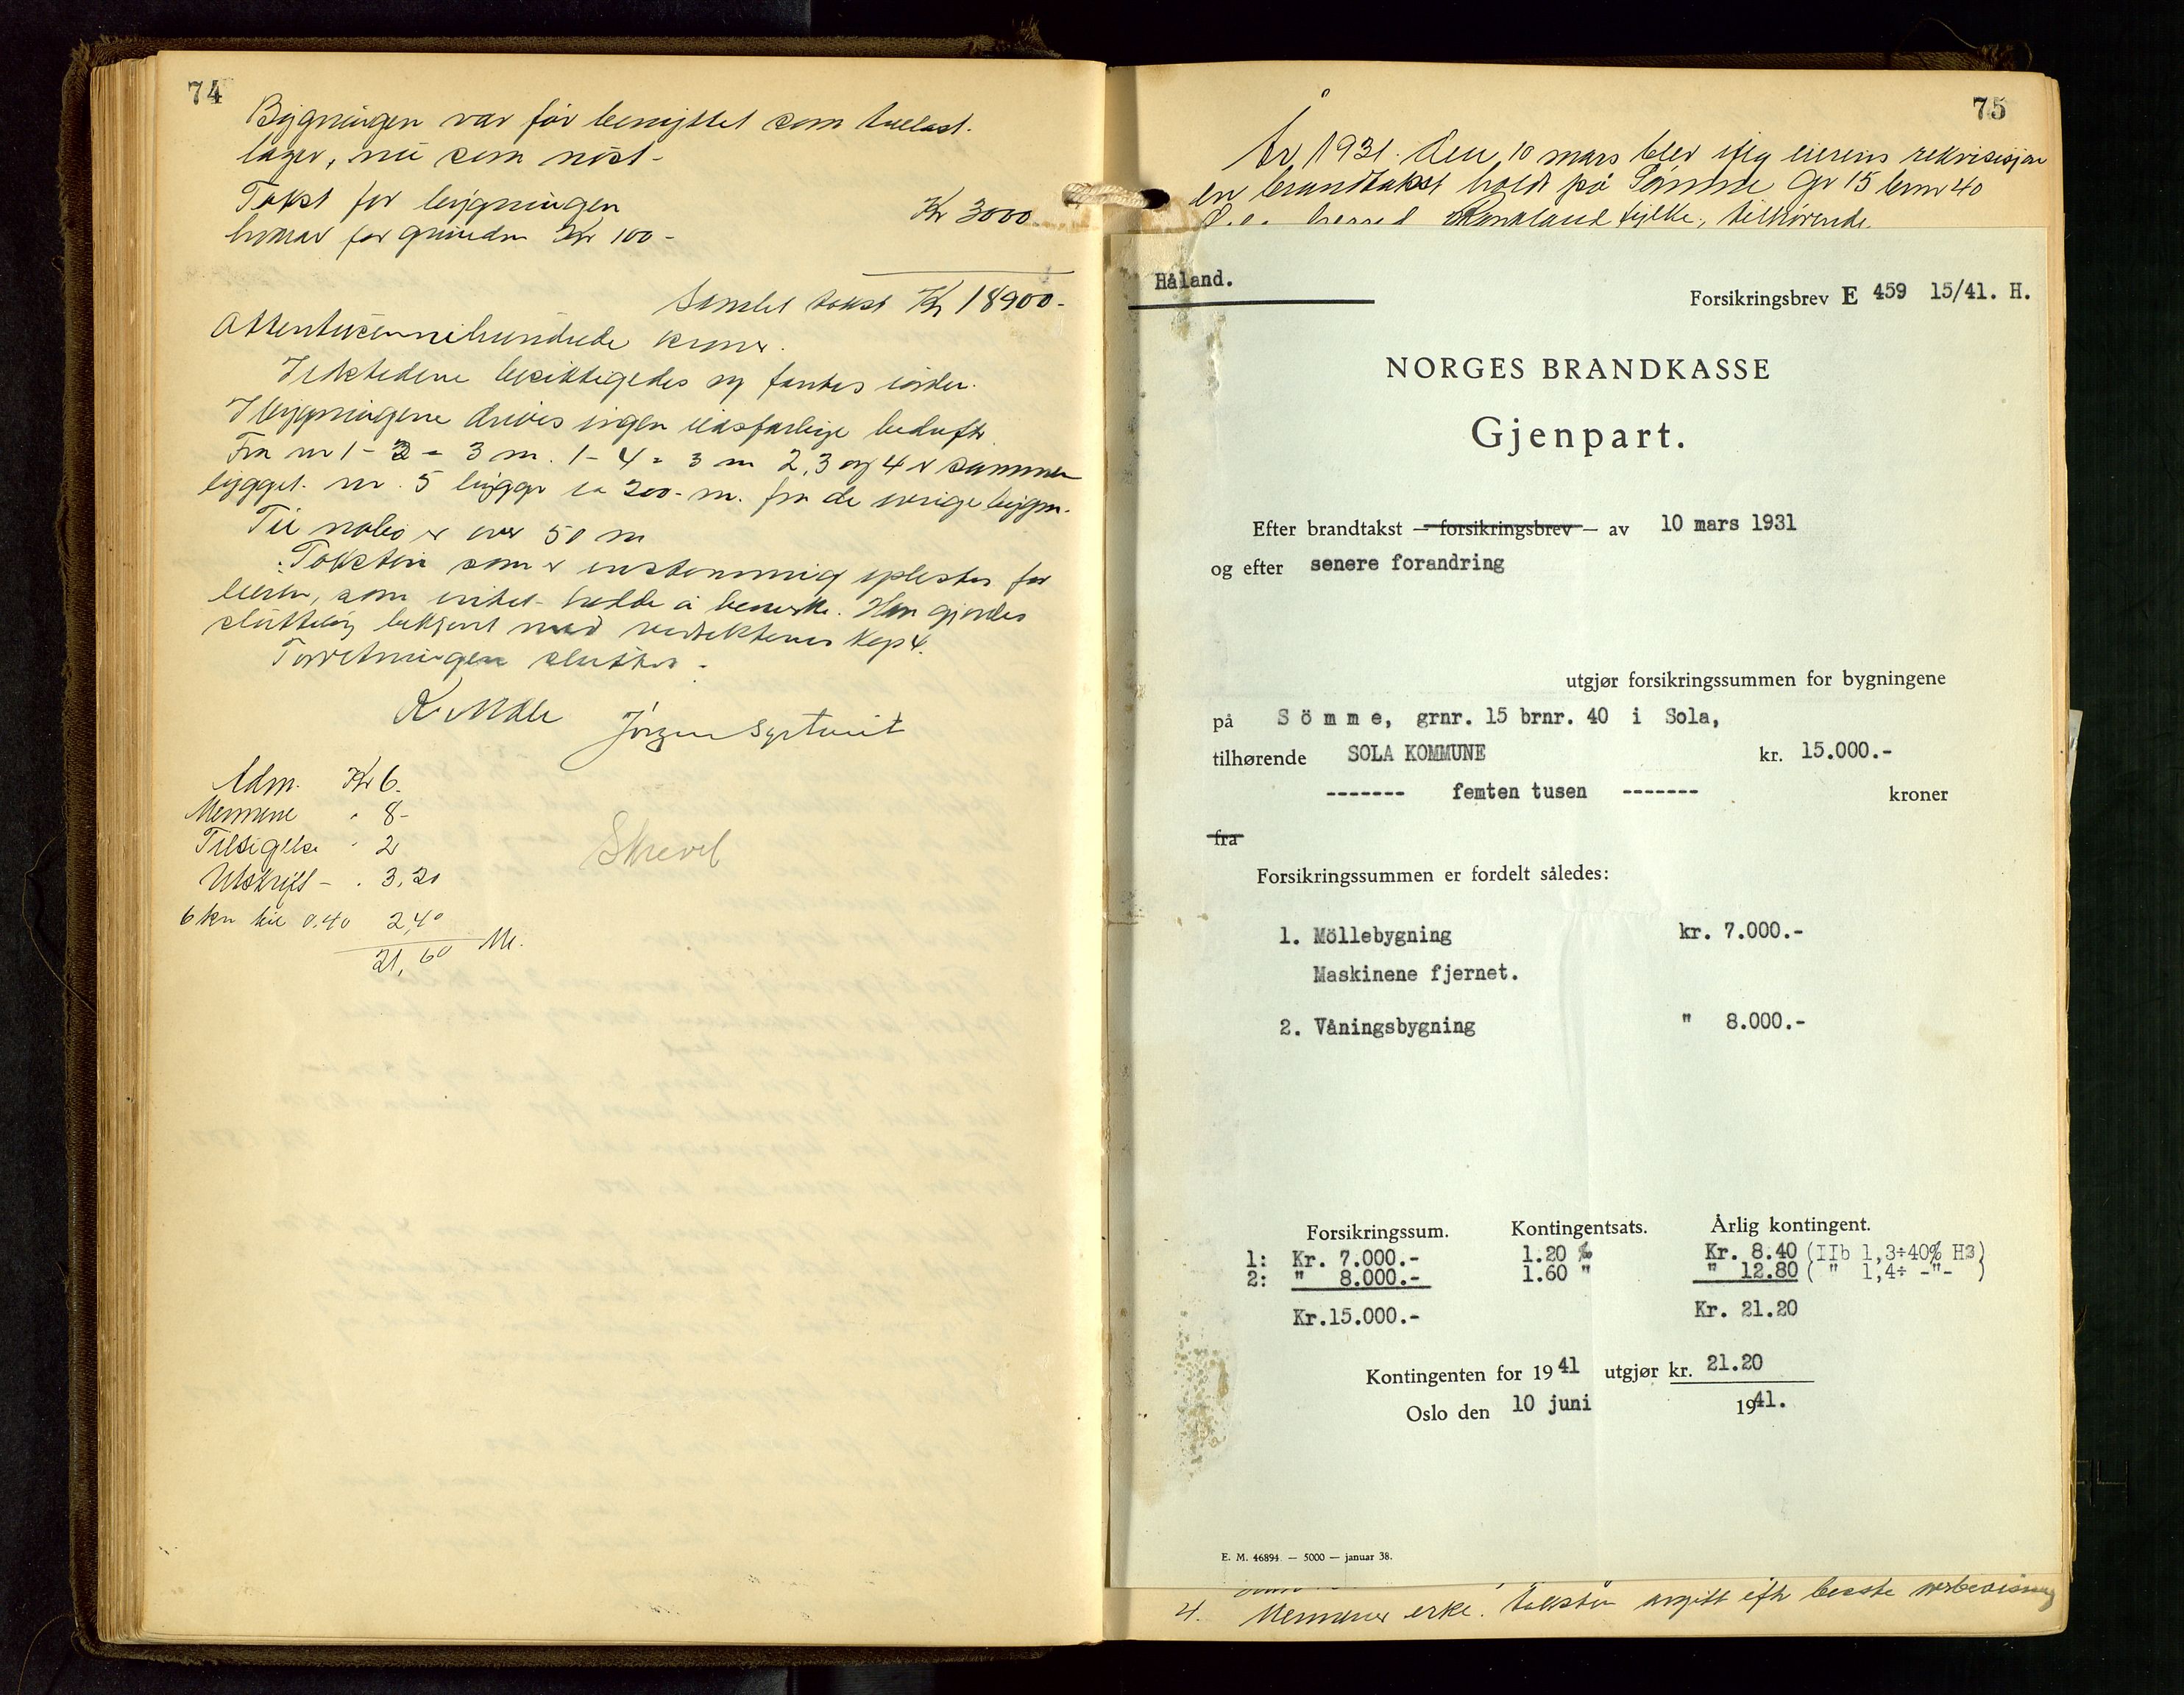 74
Bygningen var før benyttet som trelast-
lager, nu som nøst -
Takst for bygningen Kr 3000
herav for grunden Kr 100 -
Samlet takst Kr 18900 -
Attentusennihundrede kroner.
Ildstedene besiktigedes og fantes iorden.
I bygningene drives ingen ildsfarlige bedrift.
Fra nr 1 - 2 = 3 m. 1 - 4 = 3 m 2, 3 og 4 er sammen
bygget. nr. 5 ligger ca 200 m. fra de øvrige bygn.
Til nabo er over 50 m
Taksten som er enstemmig oplestes for
eieren, som intet hadde å bemerke. Han gjordes
sluttelig bekjent med vedtektenes Kap 4.
Forretningen sluttet.
Jørgen
Adm. Kr 6.
Mennene " 8-
Tilsigelse " 2
Utskrift - . 3,20
6 km til 0.40 2,40
21,60
Skrevet
75
År 1931. den 10 mars blev iflg eierens rekvisisjon
en brandtakst holdt på Sømme Gr 15 brnr 40
herred Rogaland fylke, tilhørende
Håland.
Forsikringsbrev E 459 15/41. H.
NORGES BRANDKASSE
Gjenpart.
Efter brandtakst — forsikringsbrev — av 10 mars 1931
og efter senere forandring
utgjør forsikringssummen for bygningene
på S ö m m e, grnr. 15 brnr. 40 i Sola,
tilhørende SOLA KOMMUNE kr. 15.000.-
------- femten tusen ------- kroner
fra
Forsikringssummen er fordelt således:
1. Möllebygning kr. 7.000.-
Maskinene fjernet.
2. Våningsbygning " 8.000.-
Forsikringssum. Kontingentsats. Årlig kontingent.
1: Kr. 7.000.- 1.20 ‰ Kr. 8.40 (IIb 1,3÷40% H3)
2: " 8.000.- 1.60 " " 12.80 ( " 1,4÷ -"- )
Kr.15.000.- Kr. 21.20
Kontingenten for 1941 utgjør kr. 21.20
Oslo den 10 juni 1941.
E. M. 46894 — 5000 — januar 38.
4. Mennene erkl. taksten avgitt eft. beste overbevisning